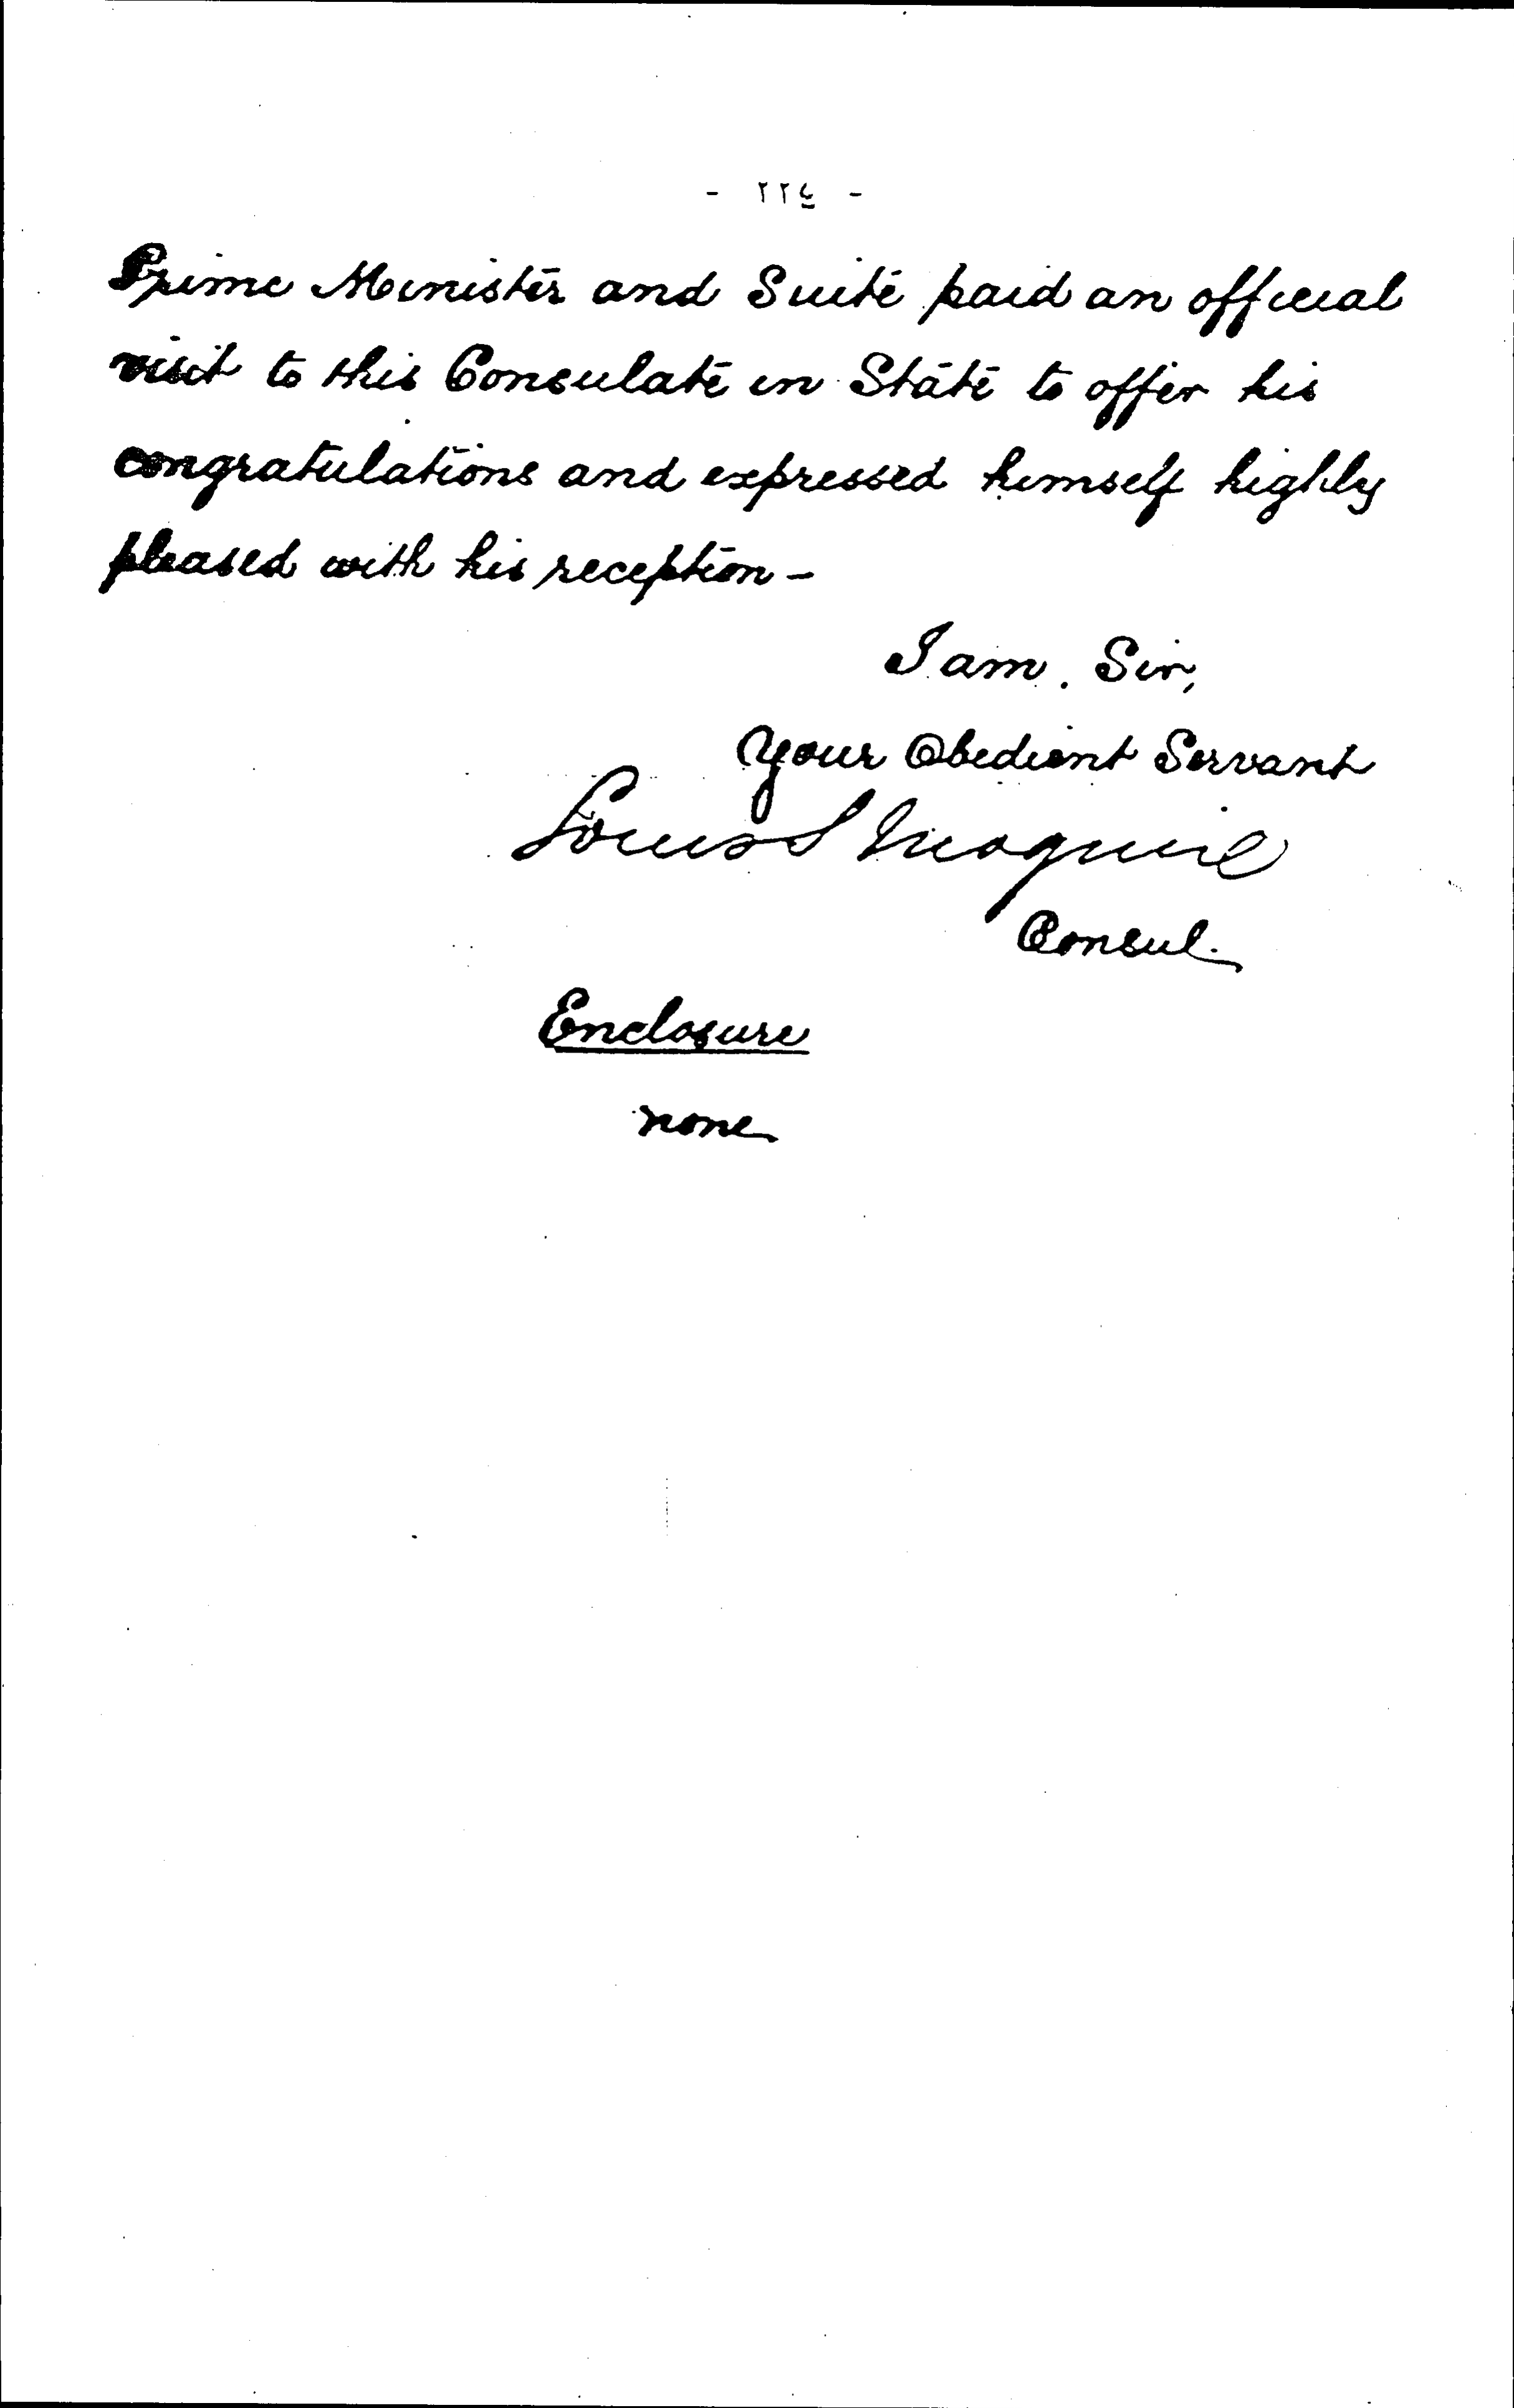 - ٢٢٤ -
Prime Minister and Suite paid an official
visit to this Consulate in State to offer his
congratulations and expressed himself highly
pleased with his reception -
I am, Sir,
Your Obedient Servant
Louis
Consul.
Enclosure
none